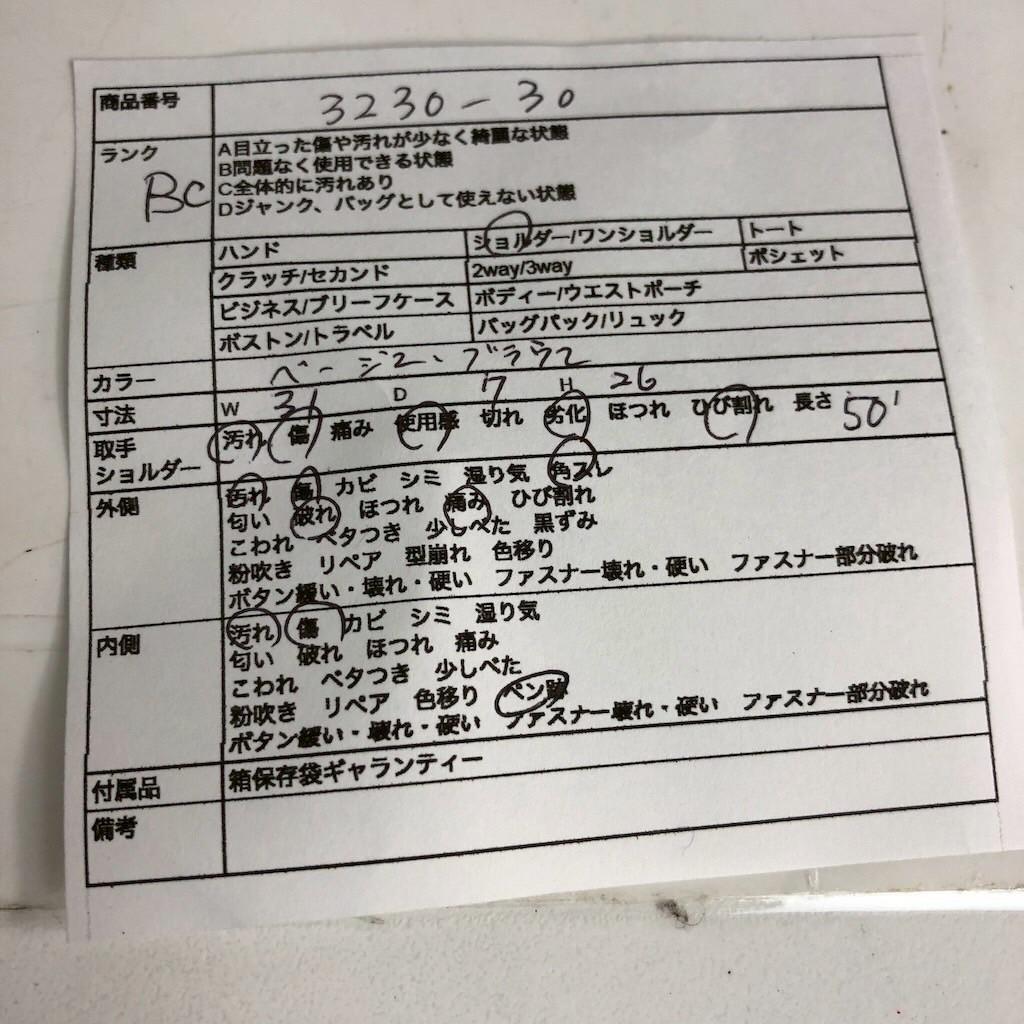 商品番号 3230-30
ランク A目立った傷や汚れが少なく綺麗な状態
B問題なく使用できる状態
BC C全体的に汚れあり
Dジャンク、バッグとして使えない状態
種類 ハンド ショルダー/ワンショルダー トート
クラッチ/セカンド 2way/3way ポシェット
ビジネス/ブリーフケース ボディー/ウエストポーチ
ボストン/トラベル バッグパック/リュック
カラー ベージュ、ブラウン
寸法 W 31 D 7 H 26
取手 汚れ 傷 痛み 使用感 切れ 劣化 ほつれ ひび割れ 長さ 50
ショルダー
外側 汚れ 傷 カビ シミ 湿り気 角スレ
匂い 破れ ほつれ 痛み ひび割れ
こわれ ベタつき 少しべた 黒ずみ
粉吹き リペア 型崩れ 色移り
ボタン緩い・壊れ・硬い ファスナー壊れ・硬い ファスナー部分破れ
内側 汚れ 傷 カビ シミ 湿り気
匂い 破れ ほつれ 痛み
こわれ ベタつき 少しべた
粉吹き リペア 色移り ペン跡
ボタン緩い・壊れ・硬い ファスナー壊れ・硬い ファスナー部分破れ
付属品 箱保存袋ギャランティー
備考